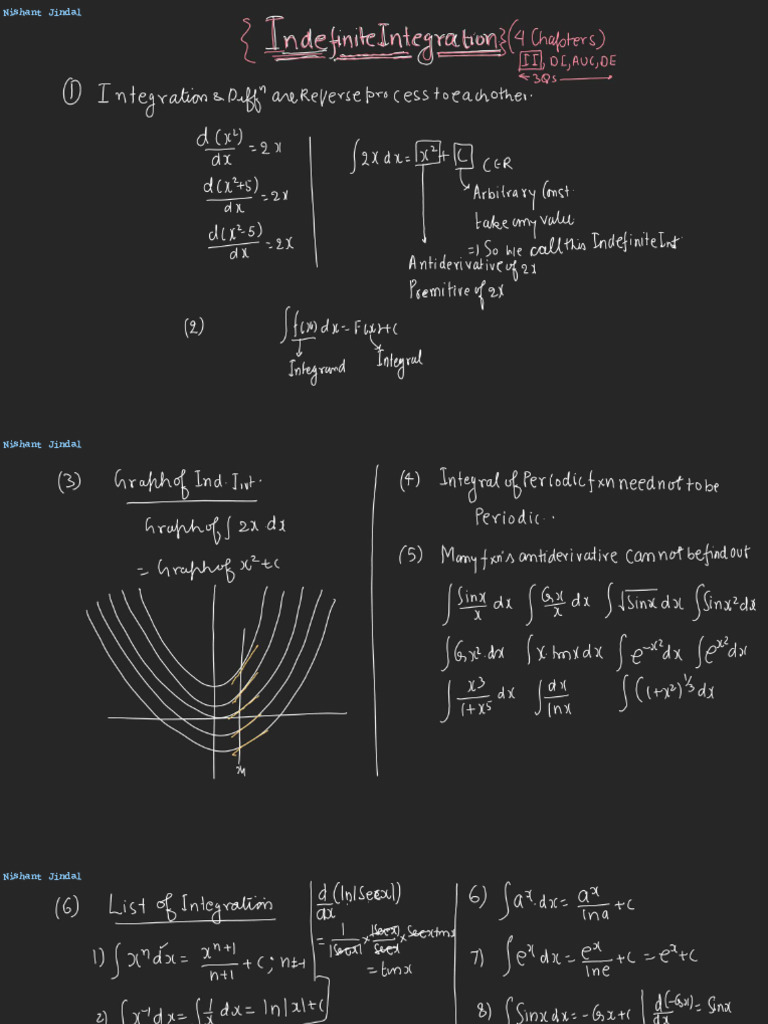 Nishant Jindal
{ Indefinite Integration } (4 Chapters)
II, DI, AUC, DE
← 3Qs →
① Integration & Diffⁿ are Reverse process to each other.
d(x²)/dx = 2x
d(x²+5)/dx = 2x
d(x²-5)/dx = 2x
∫2x dx = x² + C C∈R
Arbitrary Const
take any value
⇒ So we call this Indefinite Int
Antiderivative of 2x
Premitive of 2x
(2) ∫f(x) dx = F(x)+C
Integrand Integral
Nishant Jindal
(3) Graph of Ind. Int.
Graph of ∫2x dx
= Graph of x²+C
x₁
(4) Integral of Periodic fxn need not to be
Periodic..
(5) Many fxn's antiderivative cannot be find out
∫Sinx/x dx ∫Cosx/x dx ∫√Sinx dx ∫Sinx² dx
∫Cosx² dx ∫x.tanx dx ∫e^-x² dx ∫e^x² dx
∫x³/1+x⁵ dx ∫dx/lnx ∫(1+x²)^1/3 dx
Nishant Jindal
(6) List of Integration
1) ∫xⁿ dx = xⁿ⁺¹/n+1 + C; n≠-1
2) ∫x⁻¹ dx = ∫1/x dx = ln|x|+C
d/dx (ln|Secx|)
= 1/|Secx| × |Secx|/Secx × Secx tanx
= tanx
6) ∫aˣ.dx = aˣ/lna + C
7) ∫eˣ dx = eˣ/lne + C = eˣ+C
8) ∫Sinx dx = -Cosx + C d(-Cosx)/dx = Sinx